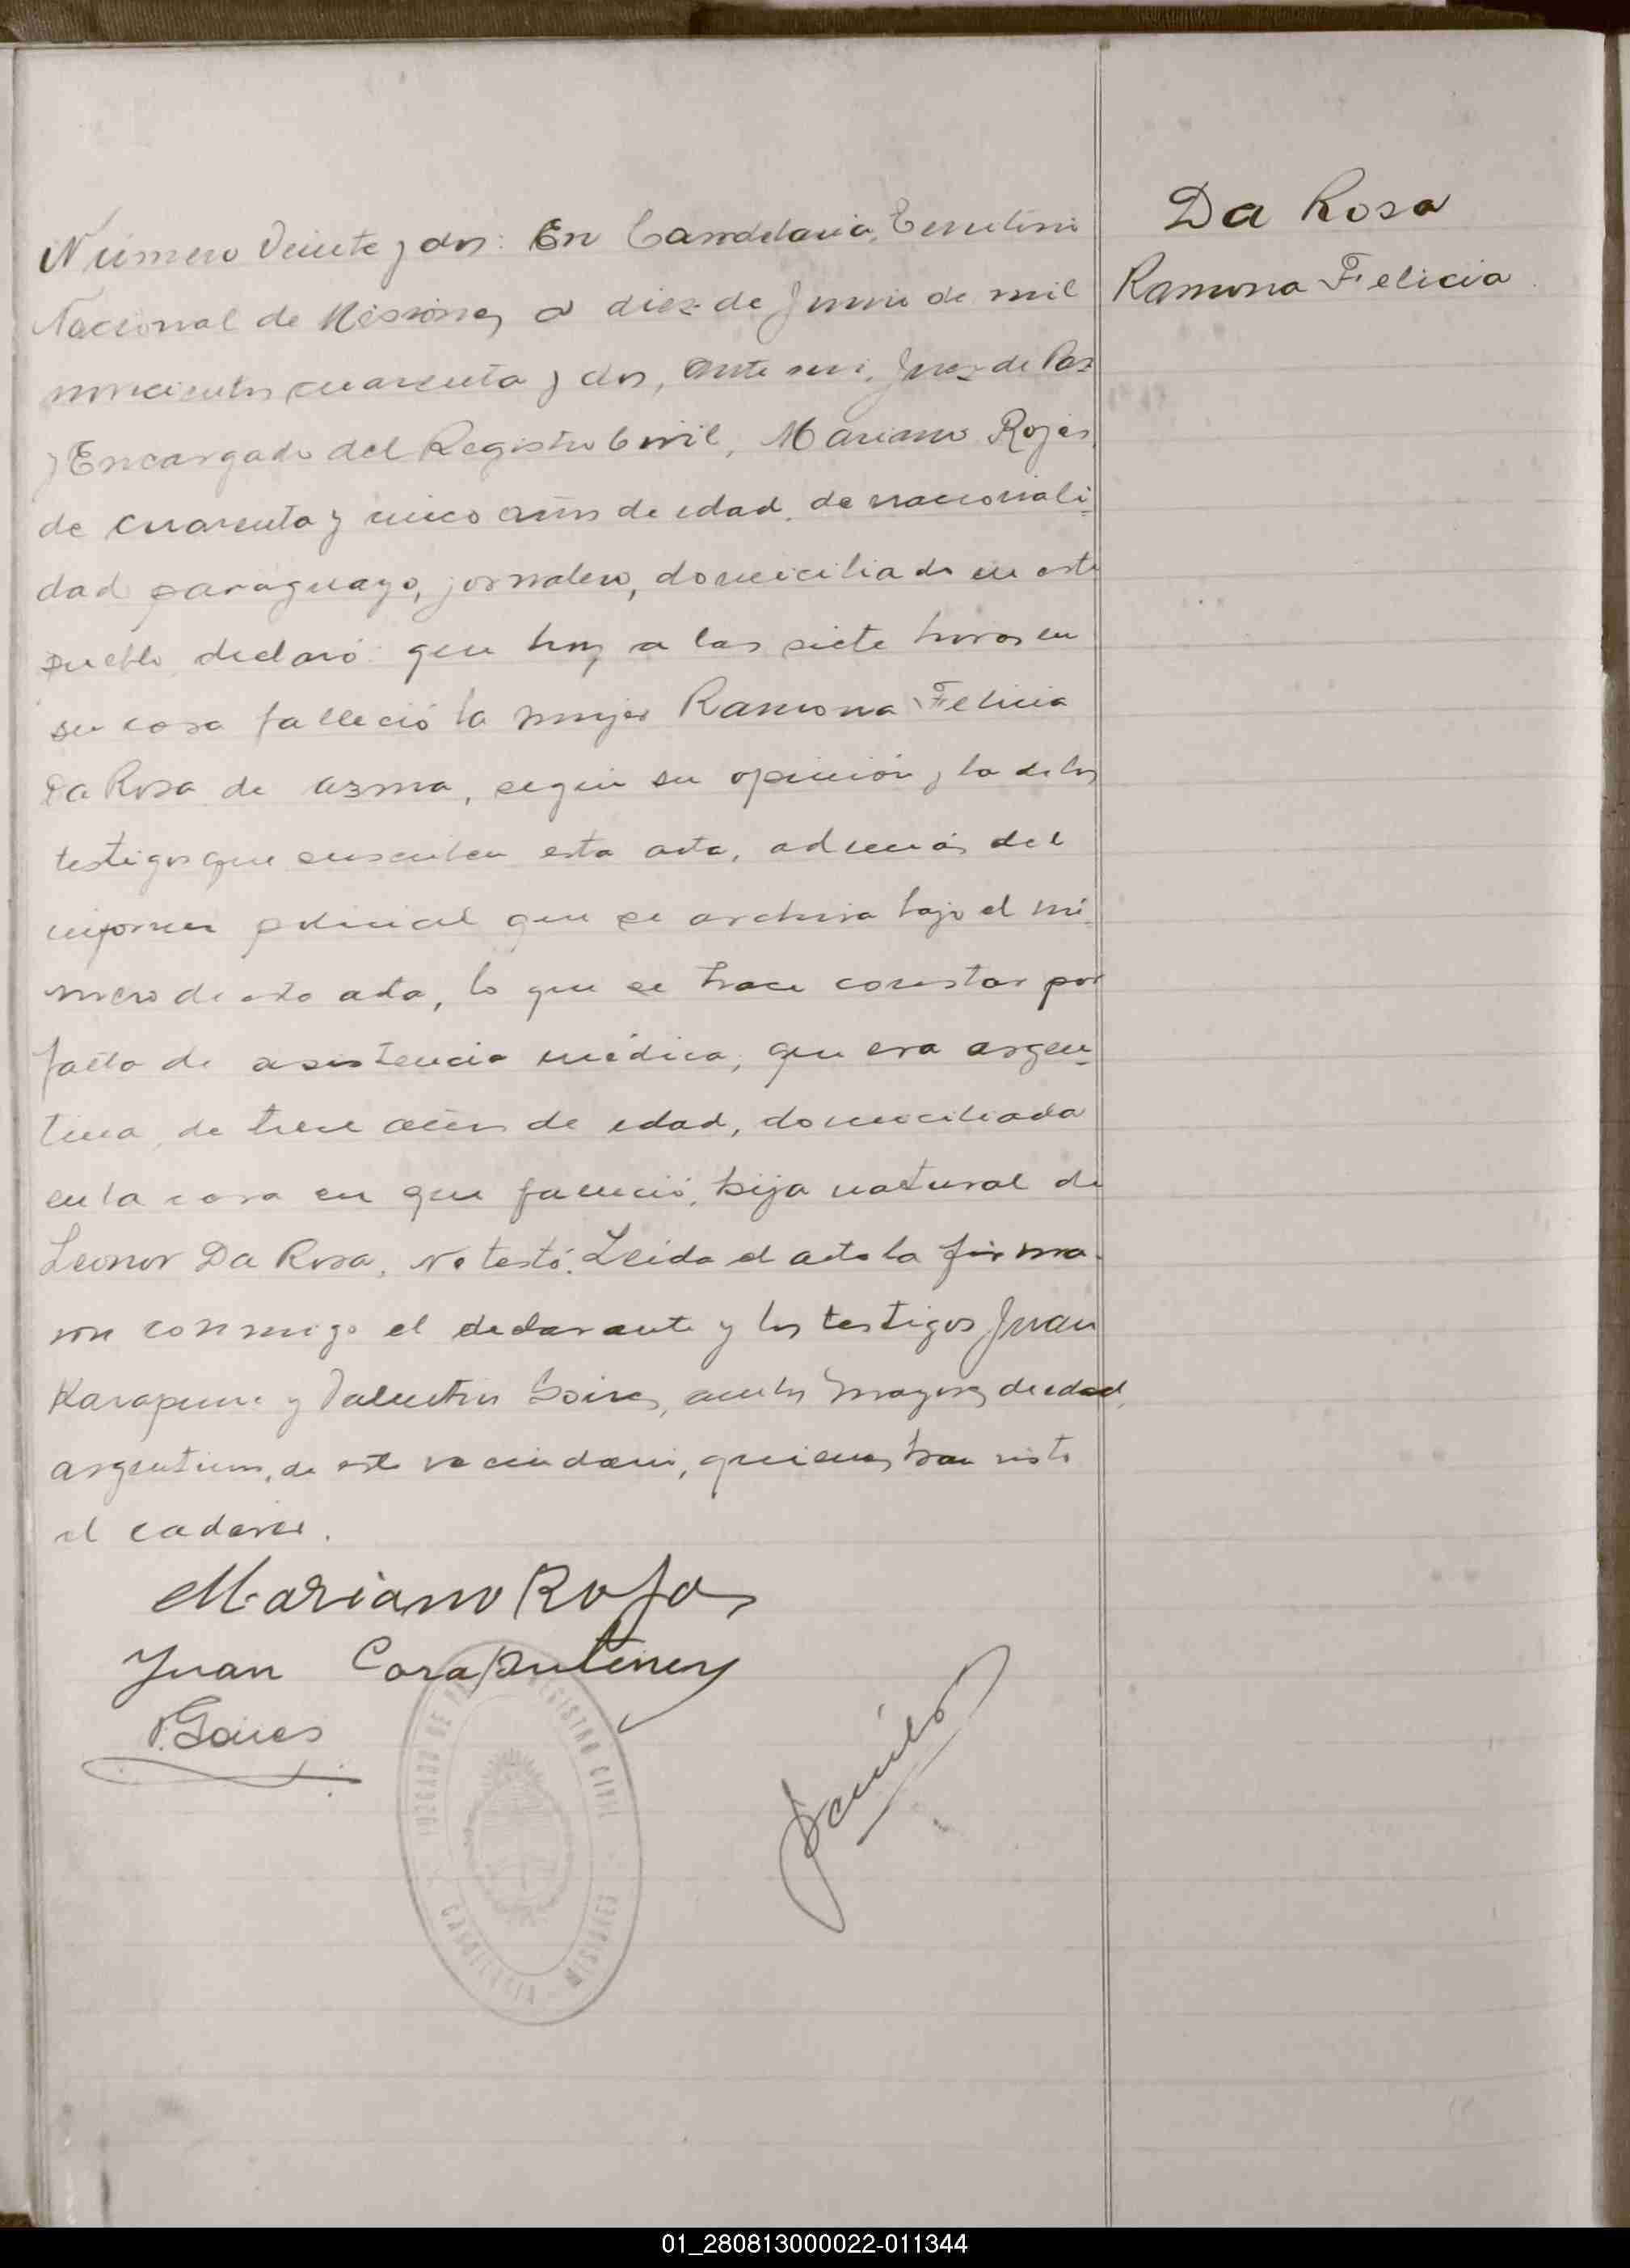 Número Veinte y dos: En Candelaria, Territorio
Nacional de Misiones, a diez de Junio de mil
novecientos cuarenta y dos, ante mi, Juez de Paz
y Encargado del Registro Civil, Mariano Rojas,
de cuarenta y cinco años de edad, de nacionali-
dad paraguayo, jornalero, domiciliado en este
pueblo declaró: que hoy a las siete horas en
su casa falleció la mujer Ramona Felicia
Da Rosa de asma, según su opinión y la de los
testigos que suscriben esta acta, además del
informe policial que se archiva bajo el nú-
mero de esta acta, lo que se hace constar por
falta de asistencia médica; que era argen-
tina, de trece años de edad, domiciliada
en la casa en que falleció, hija natural de
Leonor Da Rosa, No testó. Leída el acta la firma-
ron conmigo el declarante y los testigos Juan
y Valentin Goires, mayores de edad,
argentinos, de este vecindario, quienes han visto
el cadaver.
Mariano Rojas
Juan
V. Goires
JUZGADO DE PAZ REGISTRO CIVIL
CANDELARIA MISIONES
Da Rosa
Ramona Felicia
01_280813000022-011344